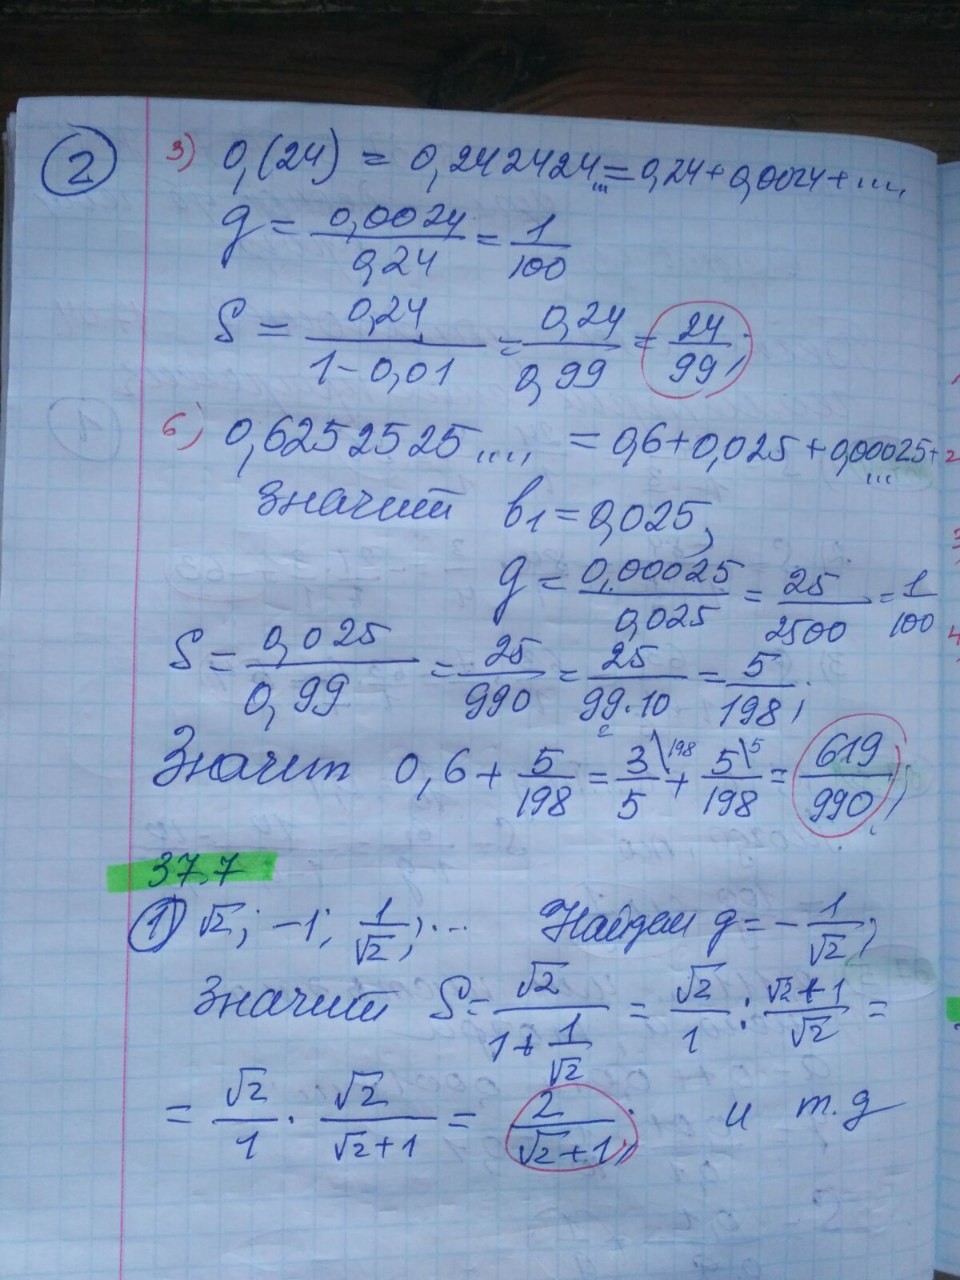 2
3) 0,(24) = 0,242424... = 0,24 + 0,0024 + ...,
g = 0,0024/0,24 = 1/100
S = 0,24/(1 - 0,01) = 0,24/0,99 = 24/99;
6) 0,6252525..., = 0,6 + 0,025 + 0,00025 + ...
значит b₁ = 0,025,
g = 0,00025/0,025 = 25/2500 = 1/100
S = 0,025/0,99 = 25/990 = 25/(99·10) = 5/198;
Значит 0,6 + 5/198 = 3/5 \198 + 5/198 \5 = 619/990;
37.7
1) √2; -1; 1/√2; ... Найдем g = -1/√2;
Значит S = √2/(1 + 1/√2) = √2/1 : (√2 + 1)/√2 =
= √2/1 · √2/(√2 + 1) = 2/(√2 + 1); и т.д